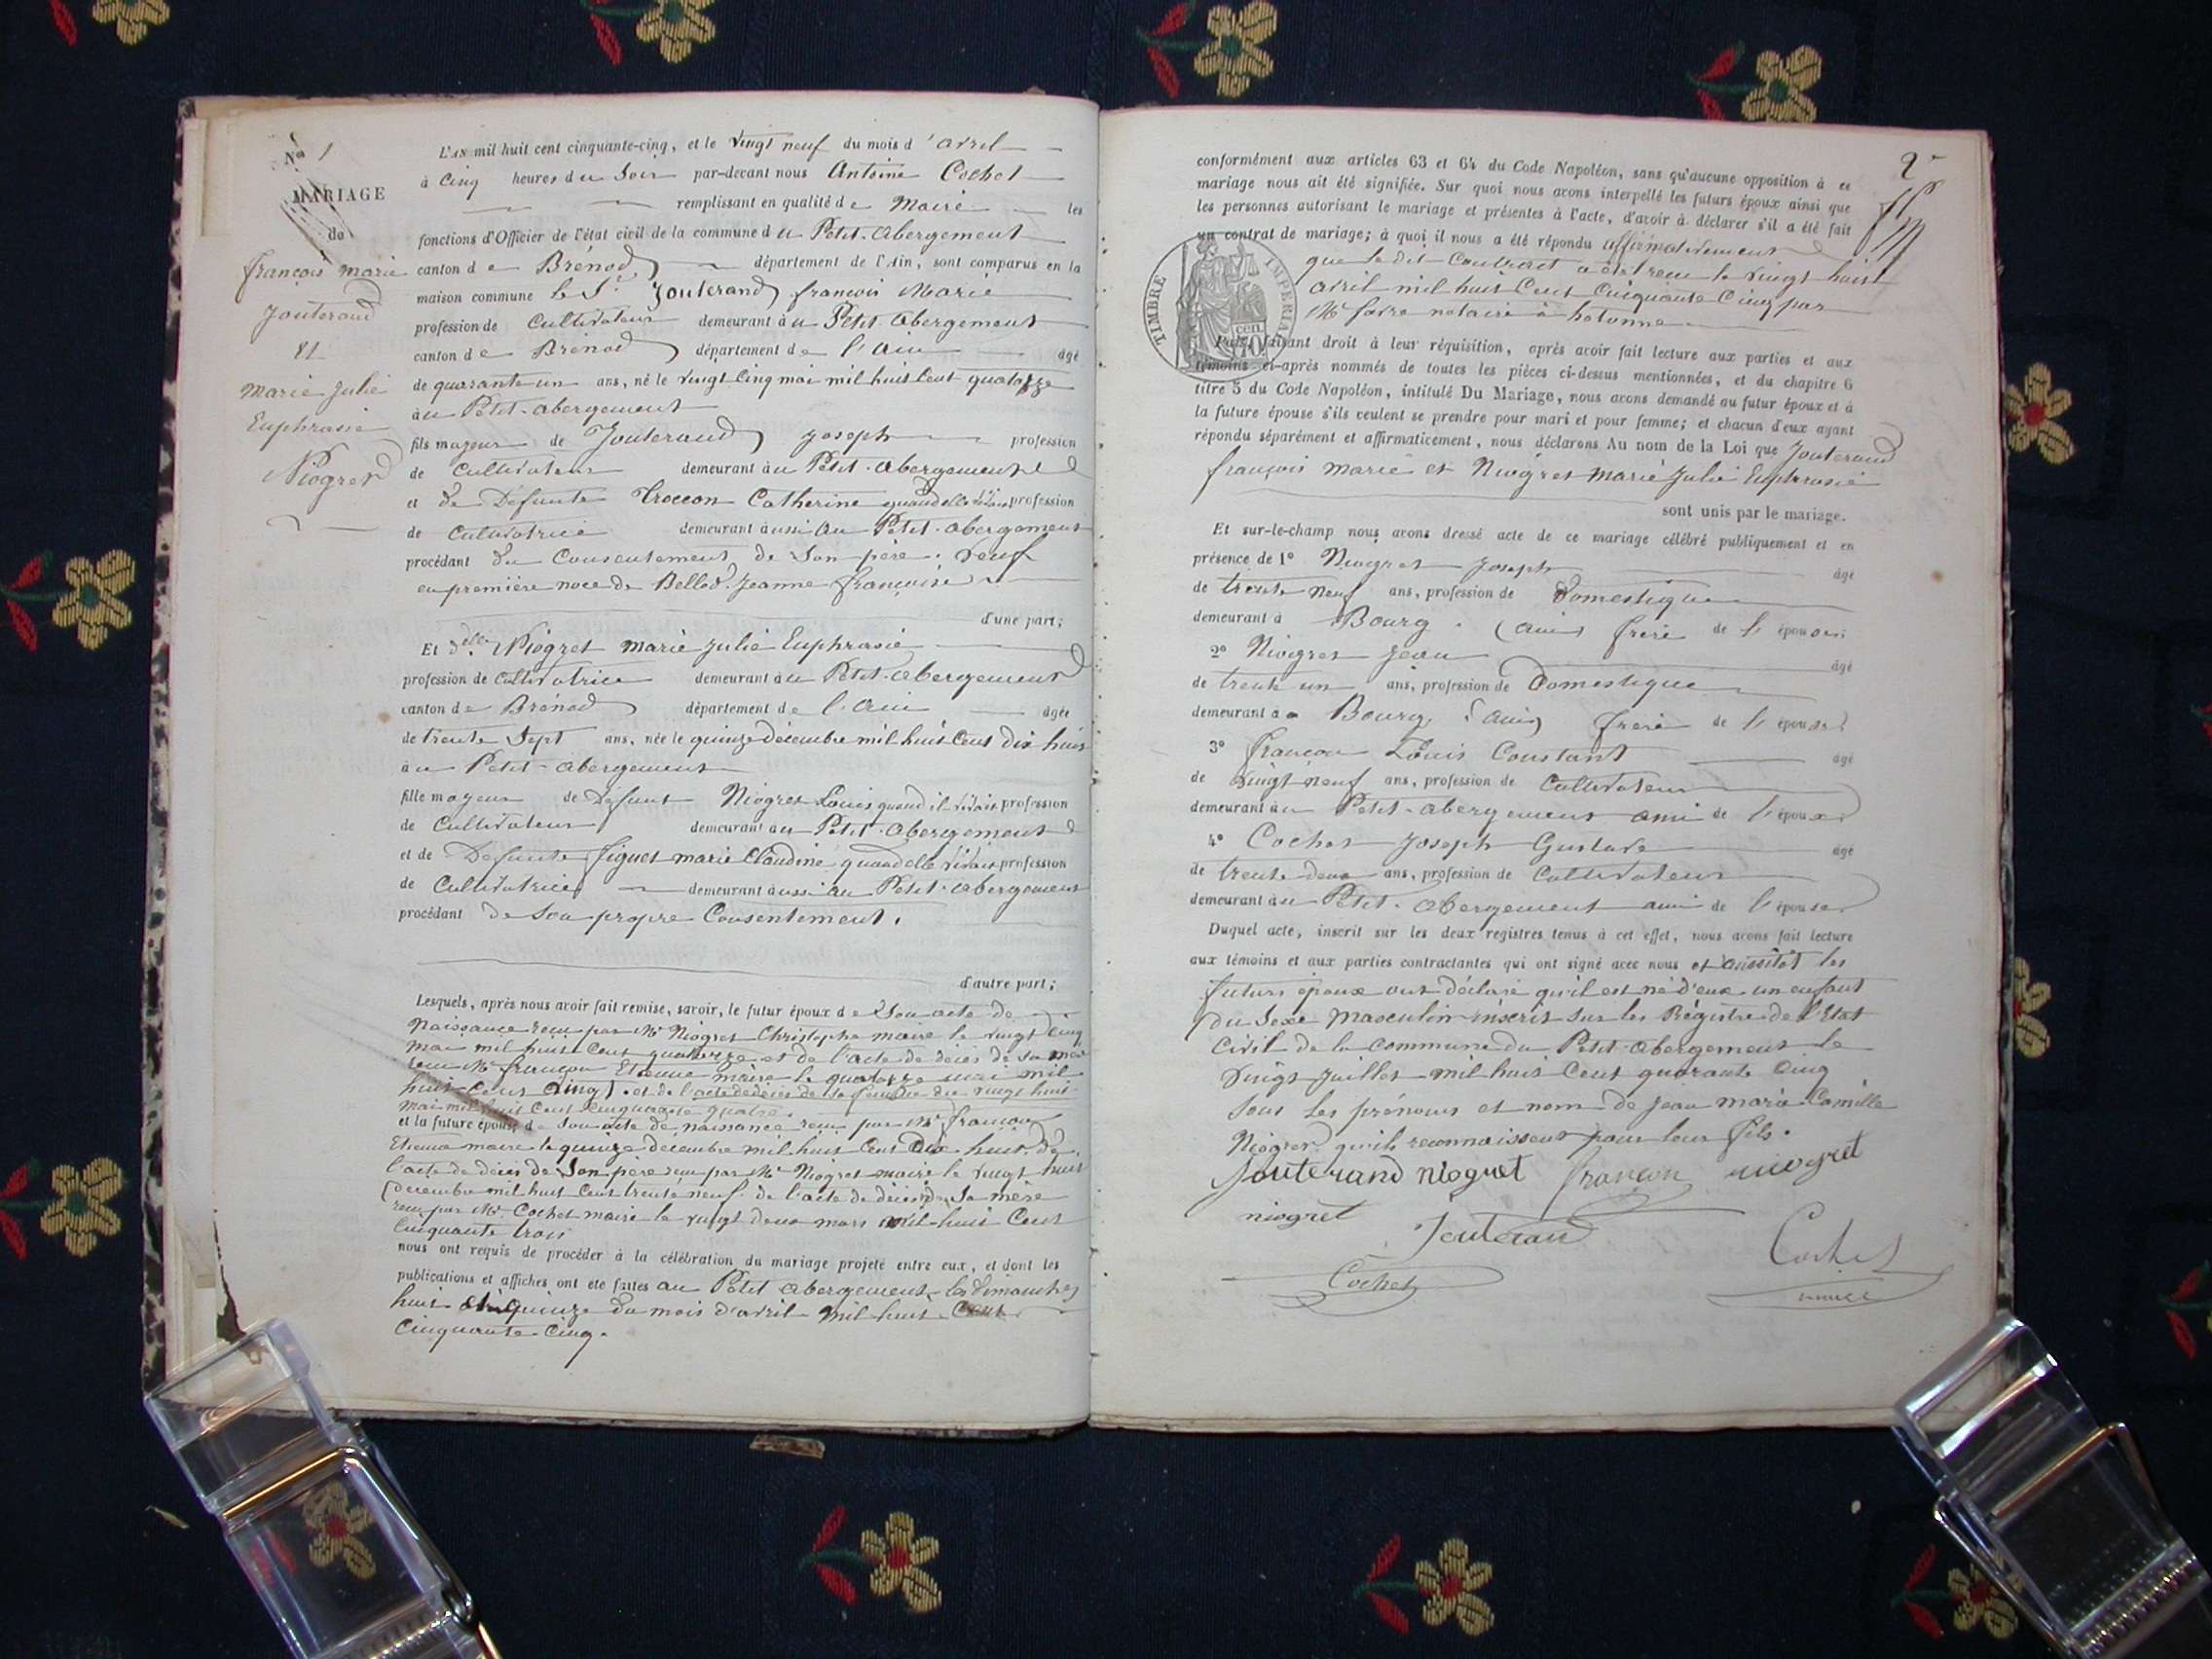 No 1
MARIAGE
de
françois marie
Jouterand
et
marie julie
Euphrasie
Niogret
L'AN mil huit cent cinquante-cinq, et le vingt neuf du mois d'avril
à cinq heures du soir par-devant nous Antoine Cochet
remplissant en qualité de Maire les
fonctions d'Officier de l'état civil de la commune du Petit-Abergement
canton de Brénod département de l'Ain, sont comparus en la
maison commune le Sr Jouterand françois Marie
profession de Cultivateur demeurant au Petit Abergement
canton de Brenod département de l'ain âgé
de quarante un ans, né le vingt cinq mai mil huit cent quatorze
au Petit-abergement
fils majeur de Jouterand joseph profession
de Cultivateur demeurant au Petit-abergement
et de Défunte Troccon Catherine quand elle vivait profession
de Cultivatrice demeurant aussi au Petit-abergement
procédant du Consentement de son père. veuf
en première noce de Bellod Jeanne françoise
d'une part;
Et dlle Niogret marie julie Euphrasie
profession de Cultivatrice demeurant au Petit-abergement
canton de Brénod département de l'ain âgée
de trente sept ans, née le quinze décembre mil huit cent dix huit
au Petit-abergement
fille majeure de Défunt Niogret Louis quand il vivait profession
de Cultivateur demeurant au Petit-abergement
et de Défunte figuet marie Claudine quand elle vivait profession
de Cultivatrice demeurant aussi au Petit-abergement
procédant de son propre Consentement.
d'autre part;
Lesquels, après nous avoir fait remise, savoir, le futur époux de Son acte de
Naissance reçu par Mr Niogret Christophe maire le vingt cinq
mai mil huit cent quatorze et de l'acte de décès de sa mère
reçu Mr françon Etienne maire le quatorze mai mil
huit cent vingt. et de l'acte de décès de sa femme du vingt huit
mai mil huit cent cinquante quatre.
et la future épouse de son acte de naissance reçu par Mr françon
Etienne maire le quinze décembre mil huit cent dix huit. de
l'acte de décès de son père reçu par Mr Niogret maire le vingt huit
décembre mil huit cent trente neuf. de l'acte de décès de sa mère
reçu par Mr Cochet maire le vingt deux mars mil-huit cent
cinquante trois
nous ont requis de procéder à la célébration du mariage projeté entre eux, et dont les
publications et affiches ont été faites au Petit abergement les dimanches
huit et quinze du mois d'avril mil huit cent
cinquante cinq.
2e
conformément aux articles 63 et 64 du Code Napoléon, sans qu'aucune opposition à ce
mariage nous ait été signifiée. Sur quoi nous avons interpellé les futurs époux ainsi que
les personnes autorisant le mariage et présentes à l'acte, d'avoir à déclarer s'il a été fait
un contrat de mariage; à quoi il nous a été répondu affirmativement
que le dit Contract a été reçu le vingt huit
avril mil huit cent cinquante cinq par
Mr favre notaire à hotonne
TIMBRE IMPERIAL
cen 70
Puis, faisant droit à leur réquisition, après avoir fait lecture aux parties et aux
témoins ci-après nommés de toutes les pièces ci-dessus mentionnées, et du chapitre 6
titre 5 du Code Napoléon, intitulé Du Mariage, nous avons demandé au futur époux et à
la future épouse s'ils veulent se prendre pour mari et pour femme; et chacun d'eux ayant
répondu séparément et affirmativement, nous déclarons Au nom de la Loi que Jouterand
françois marie et Niogret marie Julie Euphrasie
sont unis par le mariage.
Et sur-le-champ nous avons dressé acte de ce mariage célébré publiquement et en
présence de 1° Niogret joseph âgé
de trente neuf ans, profession de Domestique
demeurant à Bourg. (ain) frère de l'épouse;
2° Niogret jean âgé
de trente un ans, profession de Domestique
demeurant à Bourg (ain) frère de l'épouse
3° françon Louis Constant âgé
de vingt neuf ans, profession de Cultivateur
demeurant au Petit-abergement ami de l'époux
4° Cochet joseph Gustave âgé
de trente deux ans, profession de Cultivateur
demeurant au Petit-abergement ami de l'épouse
Duquel acte, inscrit sur les deux registres tenus à cet effet, nous avons fait lecture
aux témoins et aux parties contractantes qui ont signé avec nous et aussitôt les
futurs époux ont déclaré qu'il est né d'eux un enfant
du sexe masculin inscrit sur les Régistre de l'Etat
Civil de la commune du Petit-abergement le
vingt juillet mil huit cent quarante cinq
sous les prénoms et nom de jean marie Camille
Niogret qu'ils reconnaissent pour leur fils.
Jouterand niogret françon niogret
niogret Jouterand
Cochet Cochet
maire